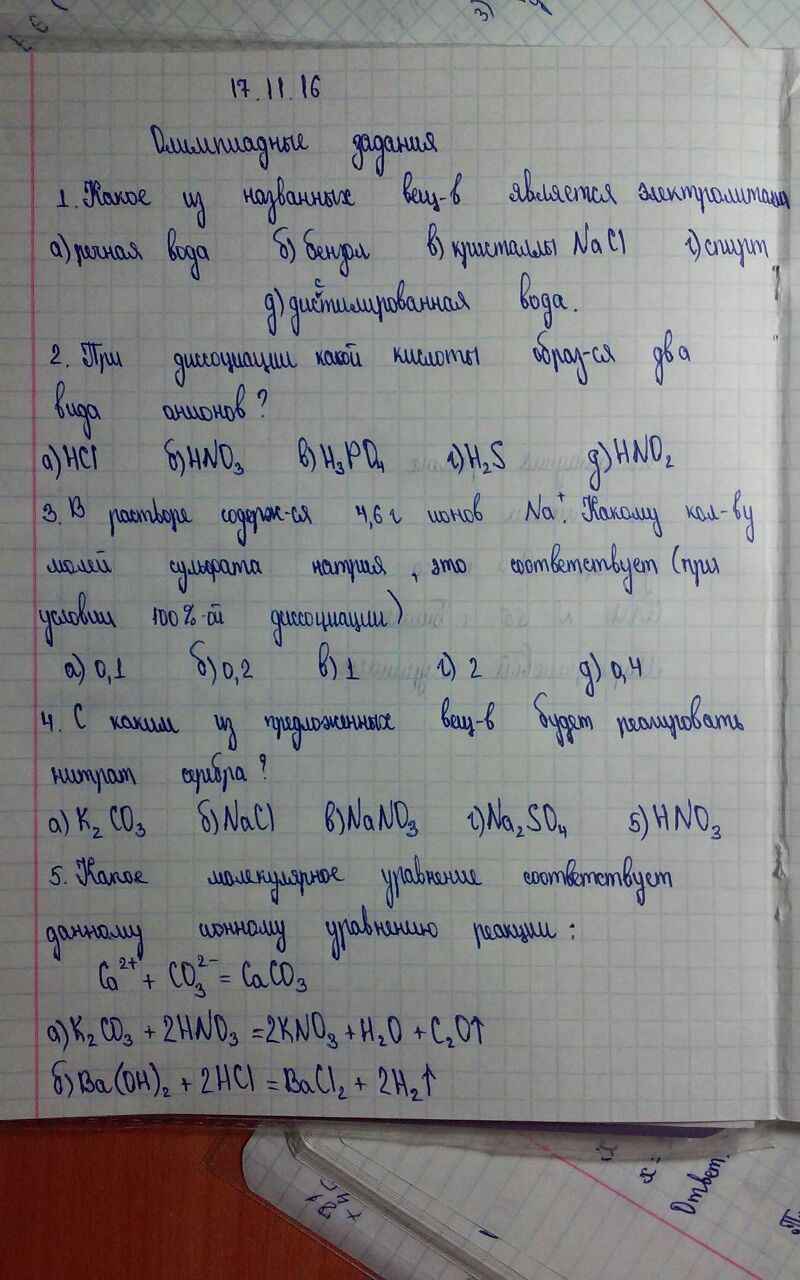 17.11.16
Олимпиадные задания
1. Какое из названных вещ-в является электролитами
а) речная вода б) бензол в) кристаллы NaCl г) спирт
д) дистилированная вода.
2. При диссоциации какой кислоты образ-ся два
вида анионов?
а) HCl б) HNO₃ в) H₃PO₄ г) H₂S д) HNO₂
3. В растворе содерж-ся 4,6 г ионов Na⁺. Какому кол-ву
молей сульфата натрия, это соответствует (при
условии 100%-ой диссоциации)
а) 0,1 б) 0,2 в) 1 г) 2 д) 0,4
4. С каким из предложенных вещ-в будет реагировать
нитрат серебра?
а) K₂CO₃ б) NaCl в) NaNO₃ г) Na₂SO₄ 5) HNO₃
5. Какое молекулярное уравнение соответствует
данному ионному уравнению реакции:
Ca²⁺ + CO₃²⁻ = CaCO₃
а) K₂CO₃ + 2HNO₃ = 2KNO₃ + H₂O + C₂O↑
б) Ba(OH)₂ + 2HCl = BaCl₂ + 2H₂↑
Ответ.